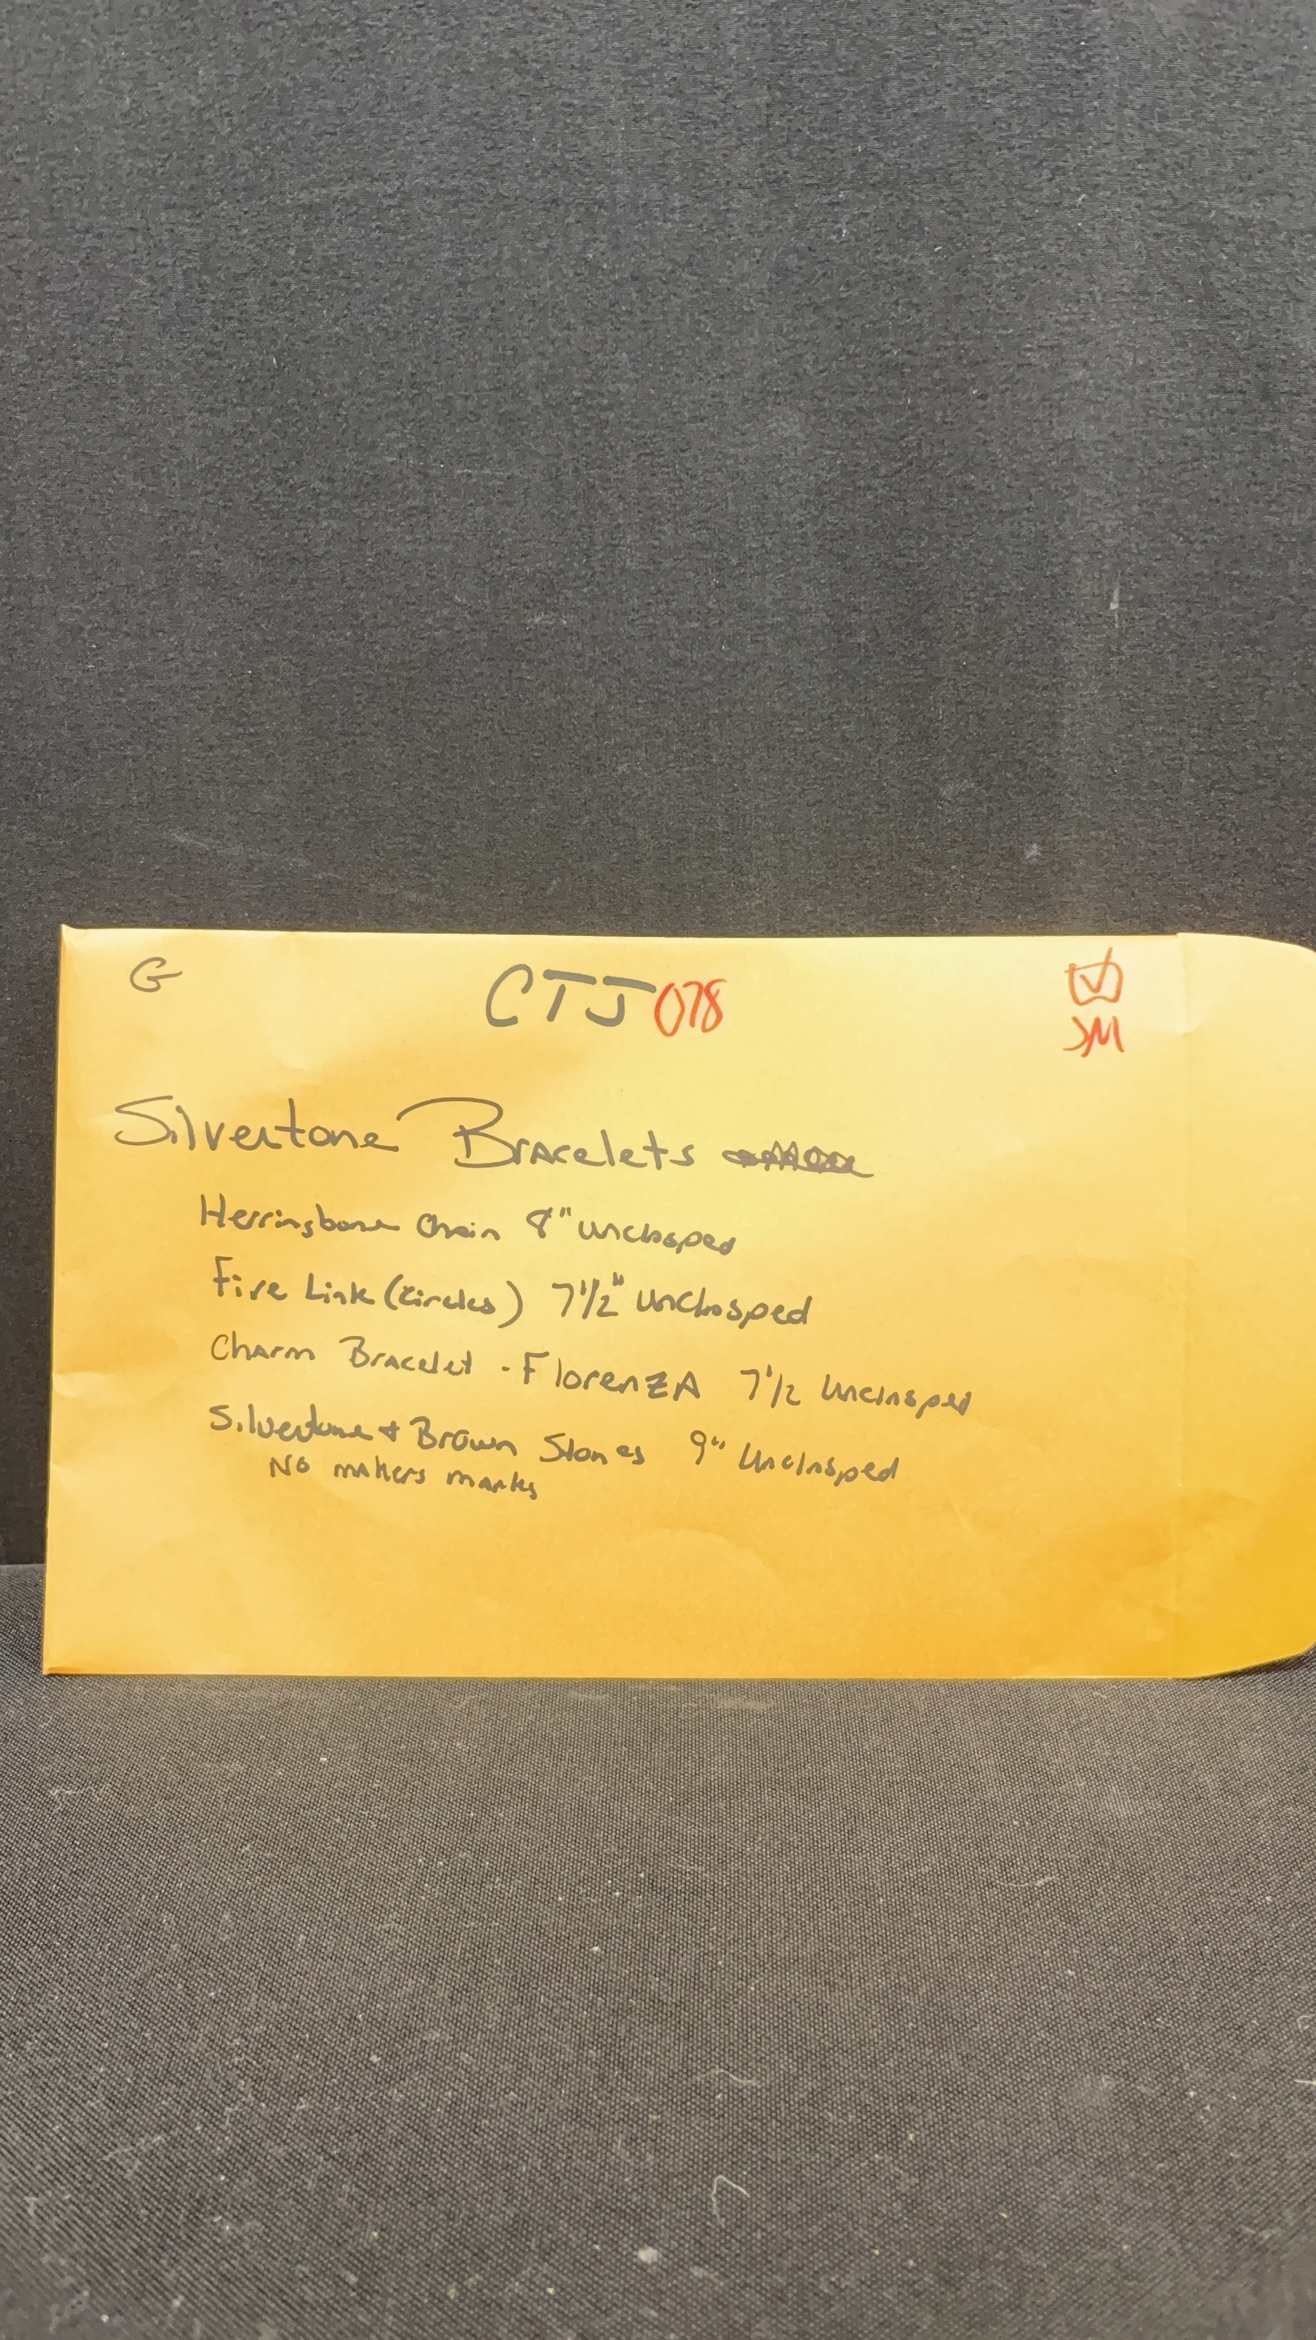 G CTJ 078
JM
Silvertone Bracelets
Herringbone Chain 8" unclasped
Fire Link (Circles) 7 1/2" Unclasped
Charm Bracelet - FlorenZA 7 1/2 Unclasped
Silvertone + Brown Stones 9" Unclasped
No makers marks